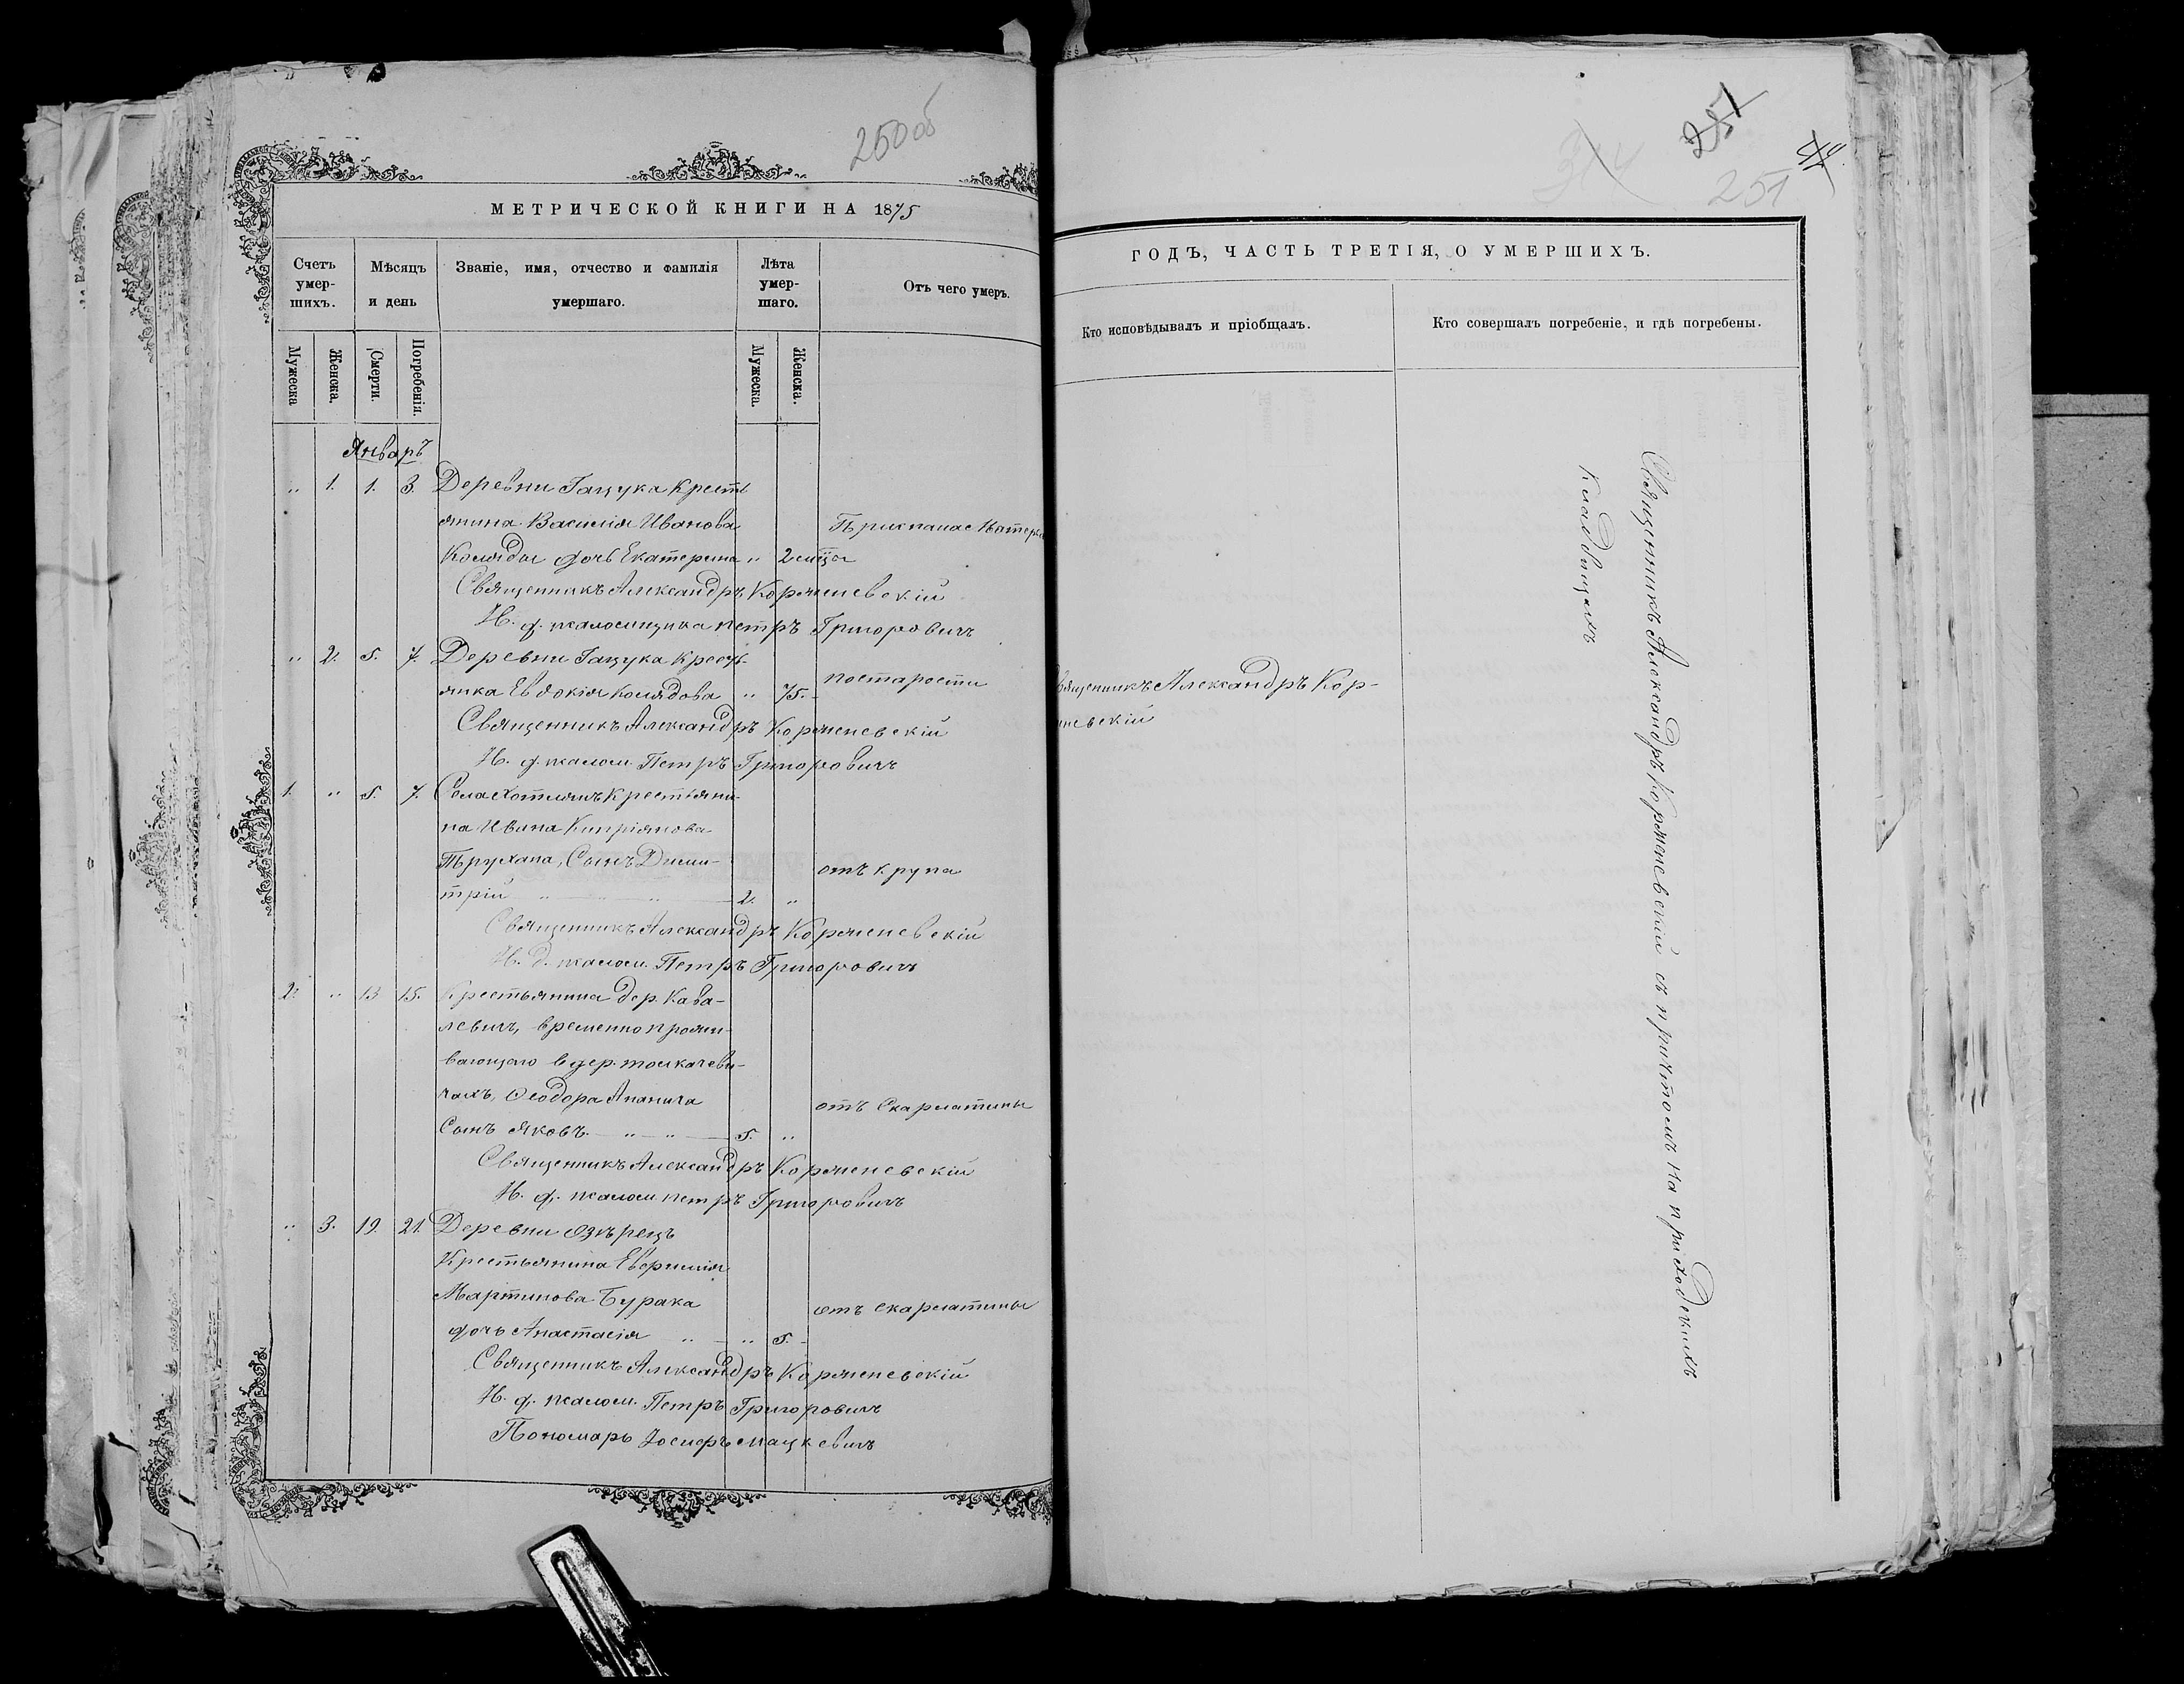 250об
МЕТРИЧЕСКОЙ КНИГИ НА 1875
Счетъ умер- шихъ.
Мѣсяцъ и день
Званіе, имя, отчество и фамилія умершаго.
Лѣта умер- шаго.
Отъ чего умеръ.
Мужеска
Женска.
Смерти.
Погребенія.
Мужеска.
Женска.
Январь
„ 1. 1. 3. Деревни Гацука Кресть
янина Василія Иванова
Коляды дочь Екатерина „ 2 мца
Священникъ Александръ Корженевскій
И. д. псаломщика Петръ Григоровичъ
„ 2. 5. 7. Деревни Гацука Кресть-
янка Евдокія Колядова „ 75. по старости
Священникъ Александръ Корженевскій
И. д. псалом. Петръ Григоровичъ
1. „ 5. 7. Села Хотлянъ Крестьяни-
на Ивана Кипріянова
Трухана, Сынъ Дими- отъ крупа
трій „ „ „ 2. „
Священникъ Александръ Корженевскій
И. д. псалом. Петръ Григоровичъ
2. „ 13 15. Крестьянина дер. Кава-
левичъ, временно прожи-
вающаго в дер. Толкачеви-
чахъ, Ѳеодора Ананича отъ Скарлатины
Сынъ Яковъ „ „ 5. „
Священникъ Александръ Корженевскій
И. д. псалом. Петръ Григоровичъ
„ 3. 19. 21. Деревни Озѣрецъ
Крестьянина Евфимія
Мартинова Бурака отъ скарлатины
дочь Анастасія „ „ 5.
Священникъ Александръ Корженевскій
И. д. псалом. Петръ Григоровичъ
Пономарь Іосифъ Мацкевичъ
251
251
ГОДЪ, ЧАСТЬ ТРЕТІЯ, О УМЕРШИХЪ.
Кто исповѣдывалъ и пріобщалъ.
Кто совершалъ погребеніе, и гдѣ погребены.
вященникъ Александръ Кор-
невскій
Священникъ Александръ Корженевскій съ причтомъ на приходскихъ
кладбищахъ